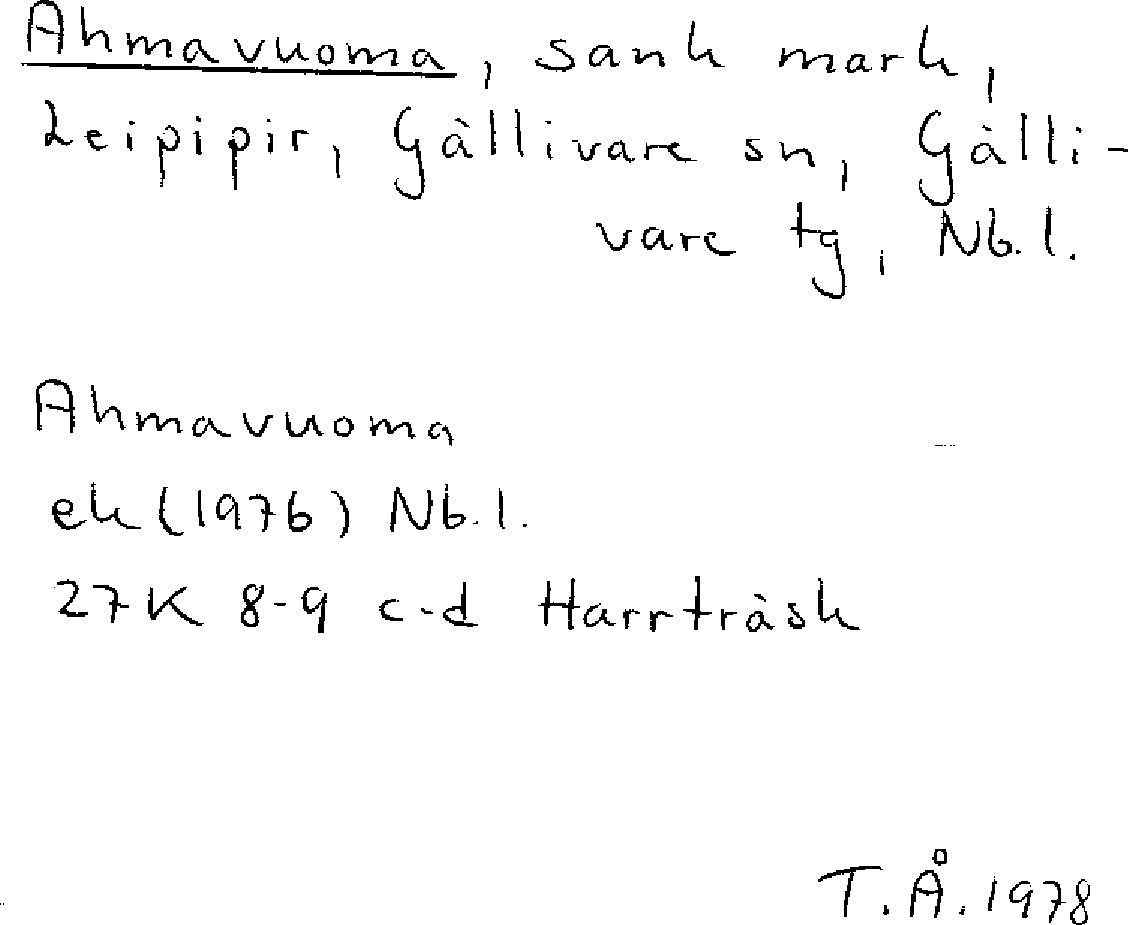 Ahmavuoma, sank mark,
Leipipir, Gällivare sn, Gälli-
vare tg, Nb.l.
Ahmavuoma
ek (1976) Nb.l.
27K 8-9 c-d Harrträsk
T.Å. 1978